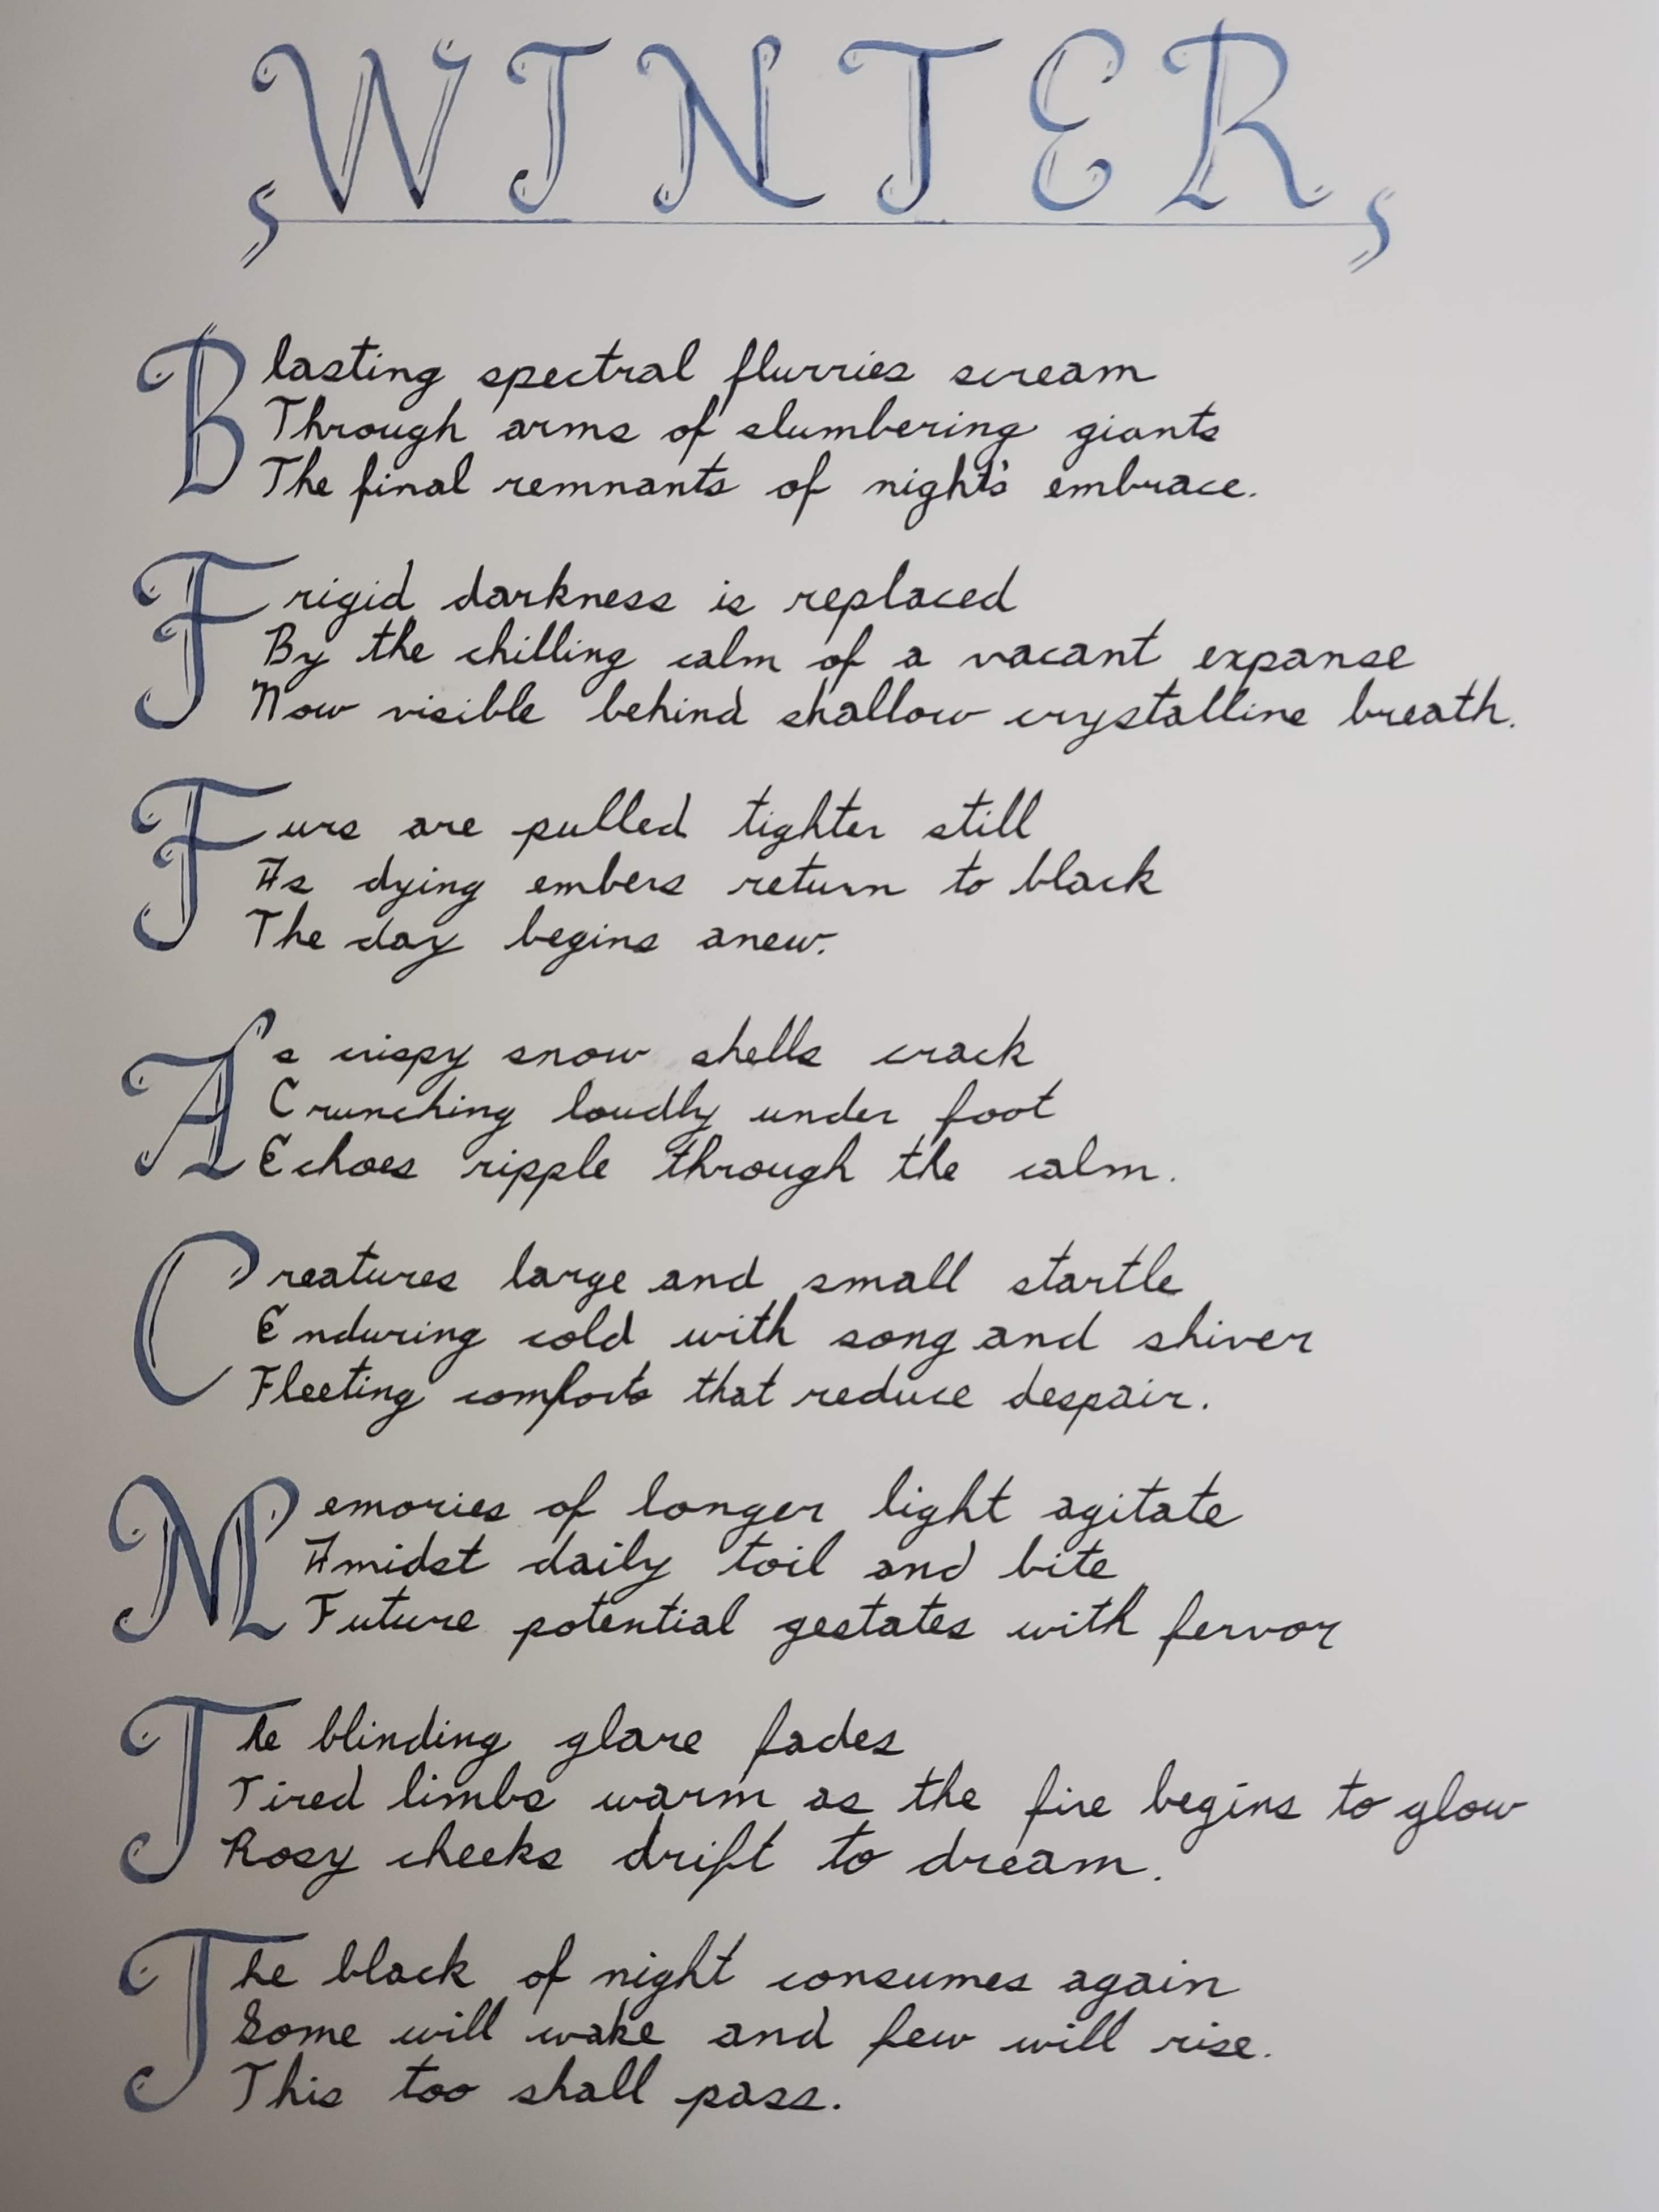 WINTER
Blasting spectral flurries scream
Through arms of slumbering giants
The final remnants of night's embrace.
Frigid darkness is replaced
By the chilling calm of a vacant expanse
Now visible behind shallow crystalline breath.
Furs are pulled tighter still
As dying embers return to black
The day begins anew.
As crispy snow shells crack
Crunching loudly under foot
Echoes ripple through the calm.
Creatures large and small startle
Enduring cold with song and shiver
Fleeting comforts that reduce despair.
Memories of longer light agitate
Amidst daily toil and bite
Future potential gestates with fervor
The blinding glare fades
Tired limbs warm as the fire begins to glow
Rosy cheeks drift to dream.
The black of night consumes again
Some will wake and few will rise.
This too shall pass.